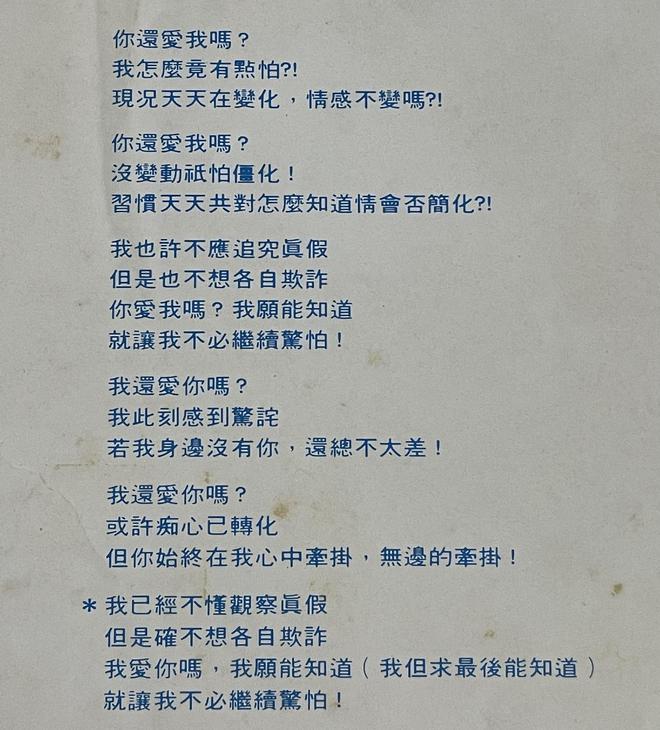 你還愛我嗎？
我怎麼竟有點怕?!
現況天天在變化，情感不變嗎?!
你還愛我嗎？
沒變動祇怕僵化！
習慣天天共對怎麼知道情會否簡化?!
我也許不應追究眞假
但是也不想各自欺詐
你愛我嗎？我願能知道
就讓我不必繼續驚怕！
我還愛你嗎？
我此刻感到驚詫
若我身邊沒有你，還總不太差！
我還愛你嗎？
或許痴心已轉化
但你始終在我心中牽掛，無邊的牽掛！
＊我已經不懂觀察眞假
但是確不想各自欺詐
我愛你嗎，我願能知道（我但求最後能知道）
就讓我不必繼續驚怕！